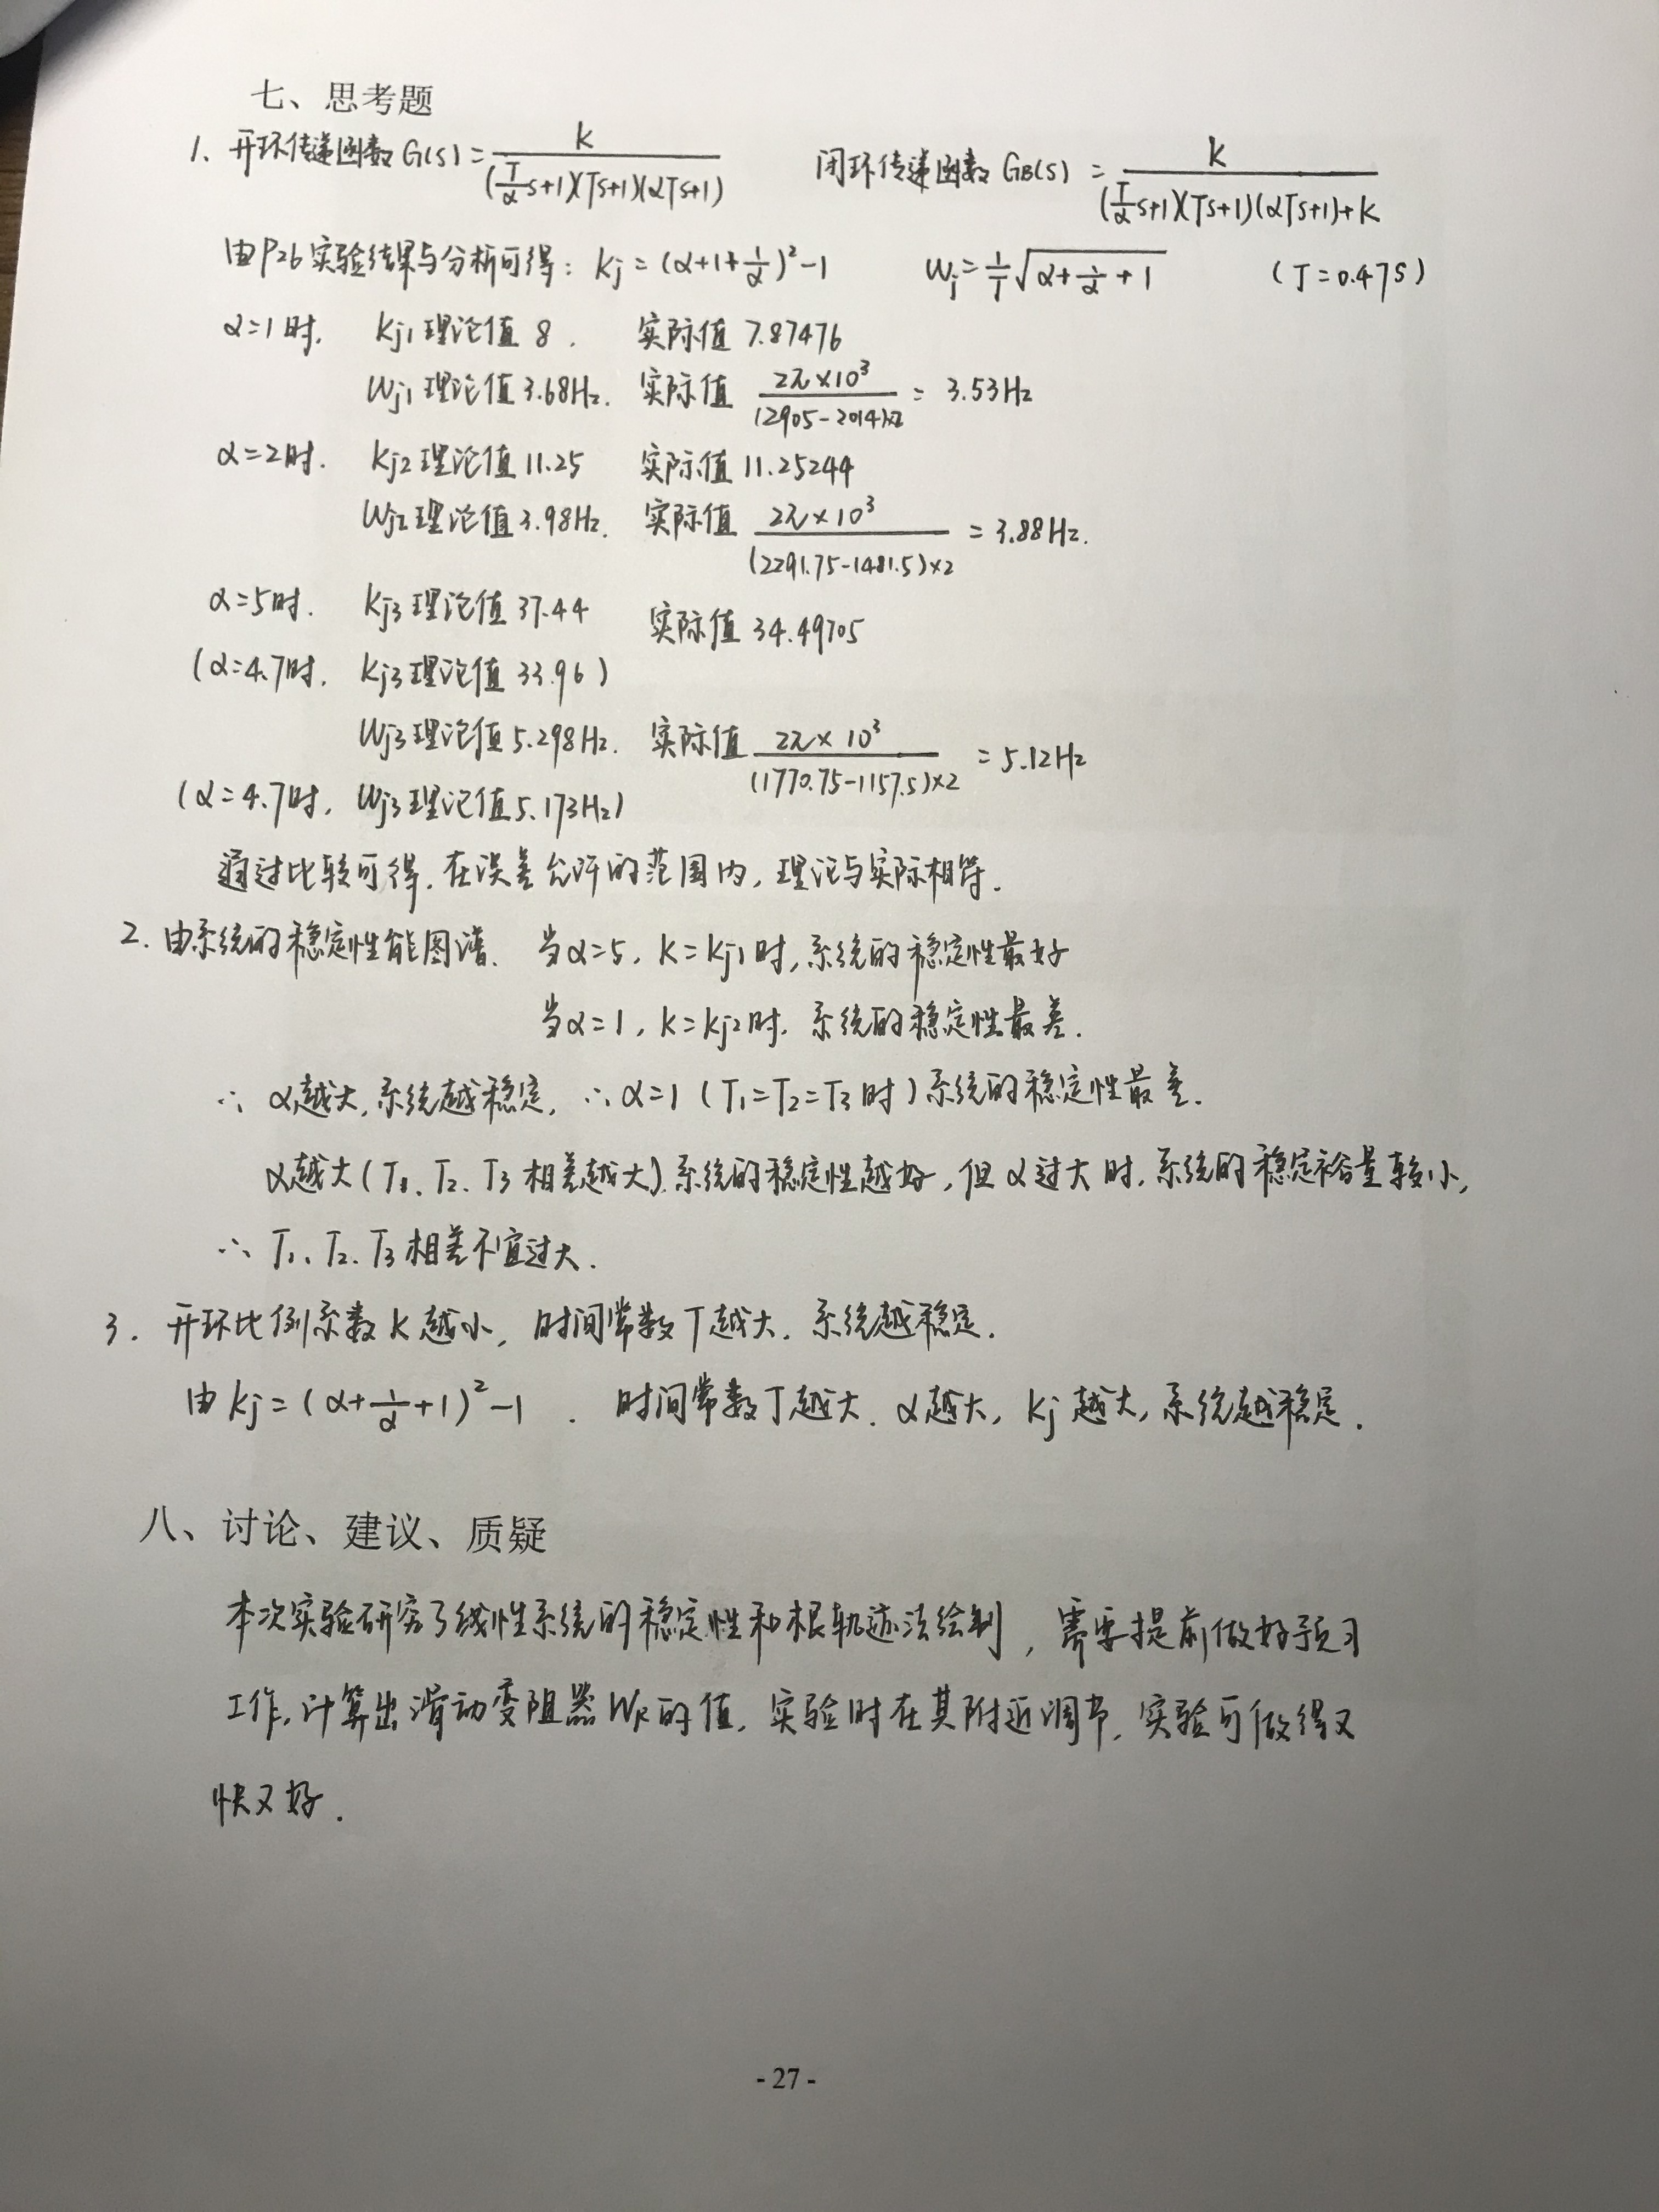 七、思考题
1、开环传递函数 G(s) = K / ((T/α s+1)(Ts+1)(αTs+1))    闭环传递函数 GB(s) = K / ((T/α s+1)(Ts+1)(αTs+1)+K)
由P26实验结果与分析可得: Kj = (α+1+1/α)²-1    Wj = 1/T √(α+1/α+1)    (T=0.47s)
α=1时, Kj1理论值 8. 实际值 7.87476
Wj1理论值 3.68Hz. 实际值 2π×10³ / (2905-2014)×2 = 3.53Hz
α=2时. Kj2理论值 11.25 实际值 11.25244
Wj2理论值 3.98Hz. 实际值 2π×10³ / (2291.75-1481.5)×2 = 3.88Hz.
α=5时. Kj3理论值 37.44 实际值 34.49705
(α=4.7时, Kj3理论值 33.96)
Wj3理论值 5.298Hz. 实际值 2π×10³ / (1770.75-1157.5)×2 = 5.12Hz
(α=4.7时, Wj3理论值 5.173Hz)
通过比较可得, 在误差允许的范围内, 理论与实际相符.
2. 由系统的稳定性能图谱、当α=5, K=Kj1时, 系统的稳定性最好
当α=1, K=Kj2时, 系统的稳定性最差.
∴ α越大, 系统越稳定, ∴α=1 (T1=T2=T3时) 系统的稳定性最差.
α越大 (T1、T2、T3相差越大) 系统的稳定性越好, 但α过大时, 系统的稳定裕量较小,
∴ T1、T2、T3相差不宜过大.
3. 开环比例系数K越小, 时间常数T越大, 系统越稳定.
由Kj=(α+1/α+1)²-1. 时间常数T越大, α越大, Kj越大, 系统越稳定.
八、讨论、建议、质疑
本次实验研究了线性系统的稳定性和根轨迹法绘制, 需要提前做好预习
工作, 计算出滑动变阻器WR的值, 实验时在其附近调节, 实验可做得又
快又好.
- 27 -